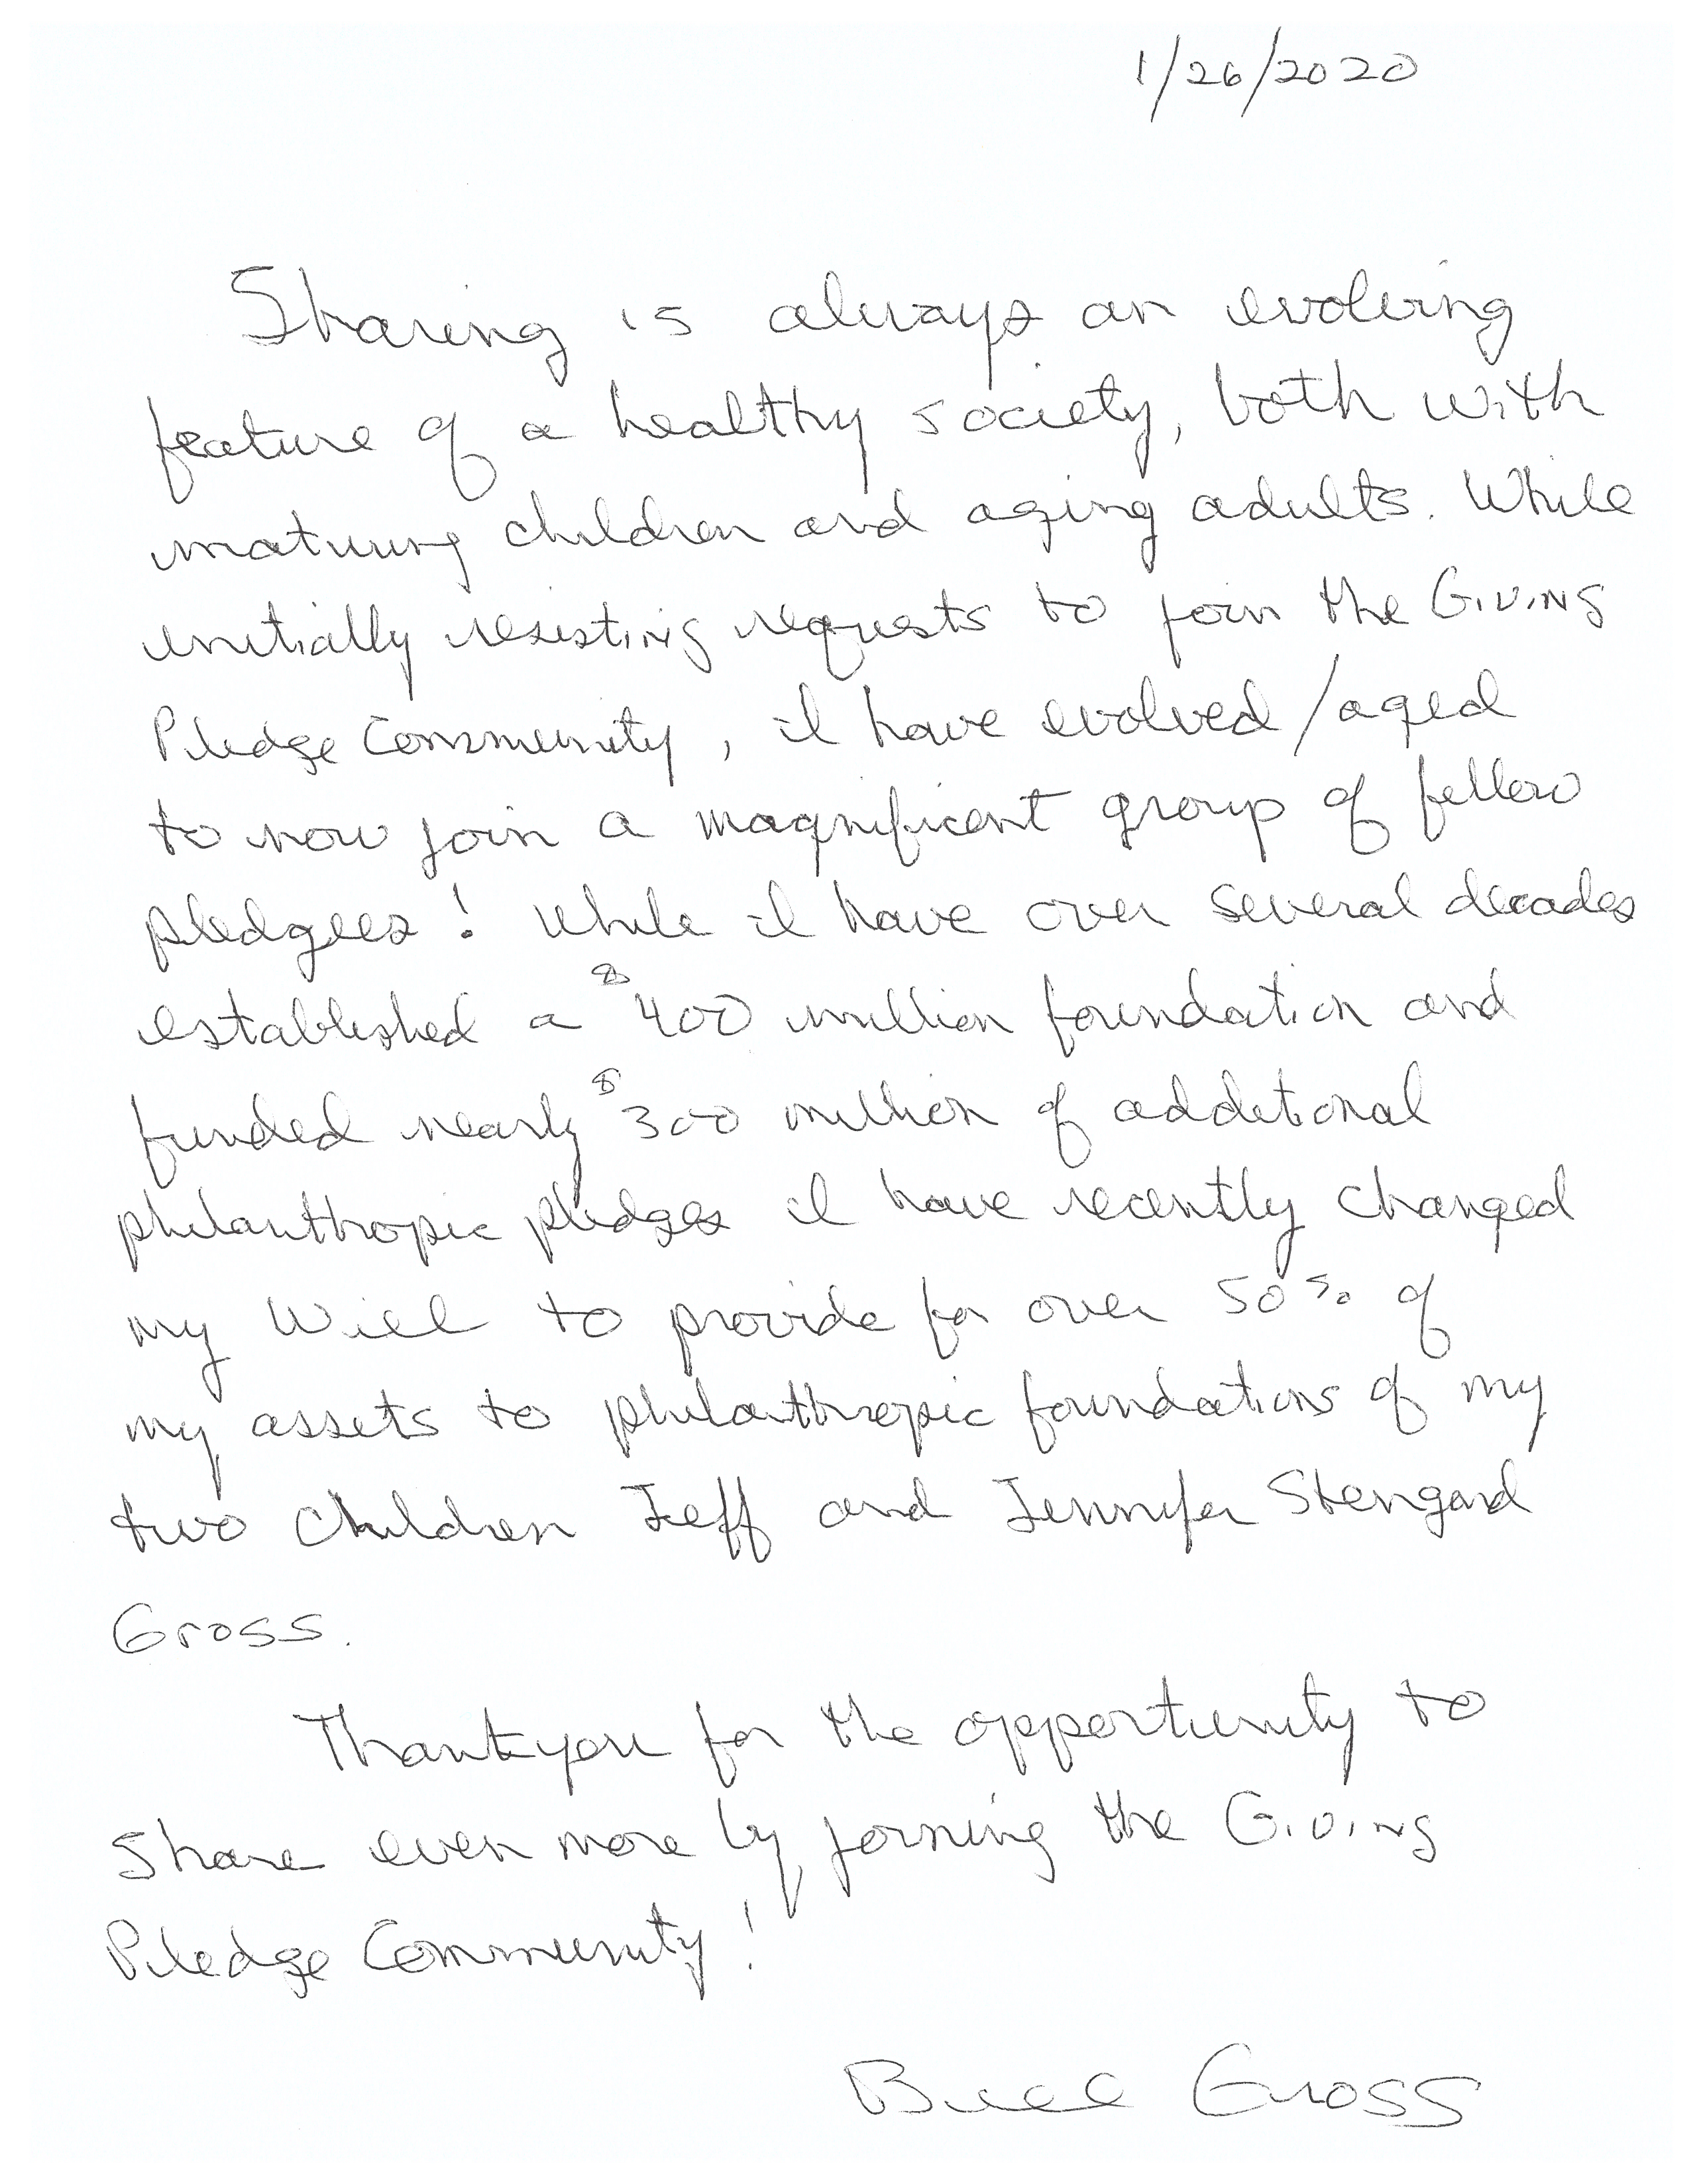 1/26/2020
Sharing is always an evolving
feature of a healthy society, both with
maturing children and aging adults. While
initially resisting requests to join the Giving
Pledge Community, I have evolved/aged
to now join a magnificent group of fellow
pledgees! While I have over several decades
established a $400 million foundation and
funded nearly $300 million of additional
philanthropic pledges I have recently changed
my Will to provide for over 50% of
my assets to philanthropic foundations of my
two children Jeff and Jennifer Stengard
Gross.
Thank you for the opportunity to
share even more by joining the Giving
Pledge Community!
Bill Gross